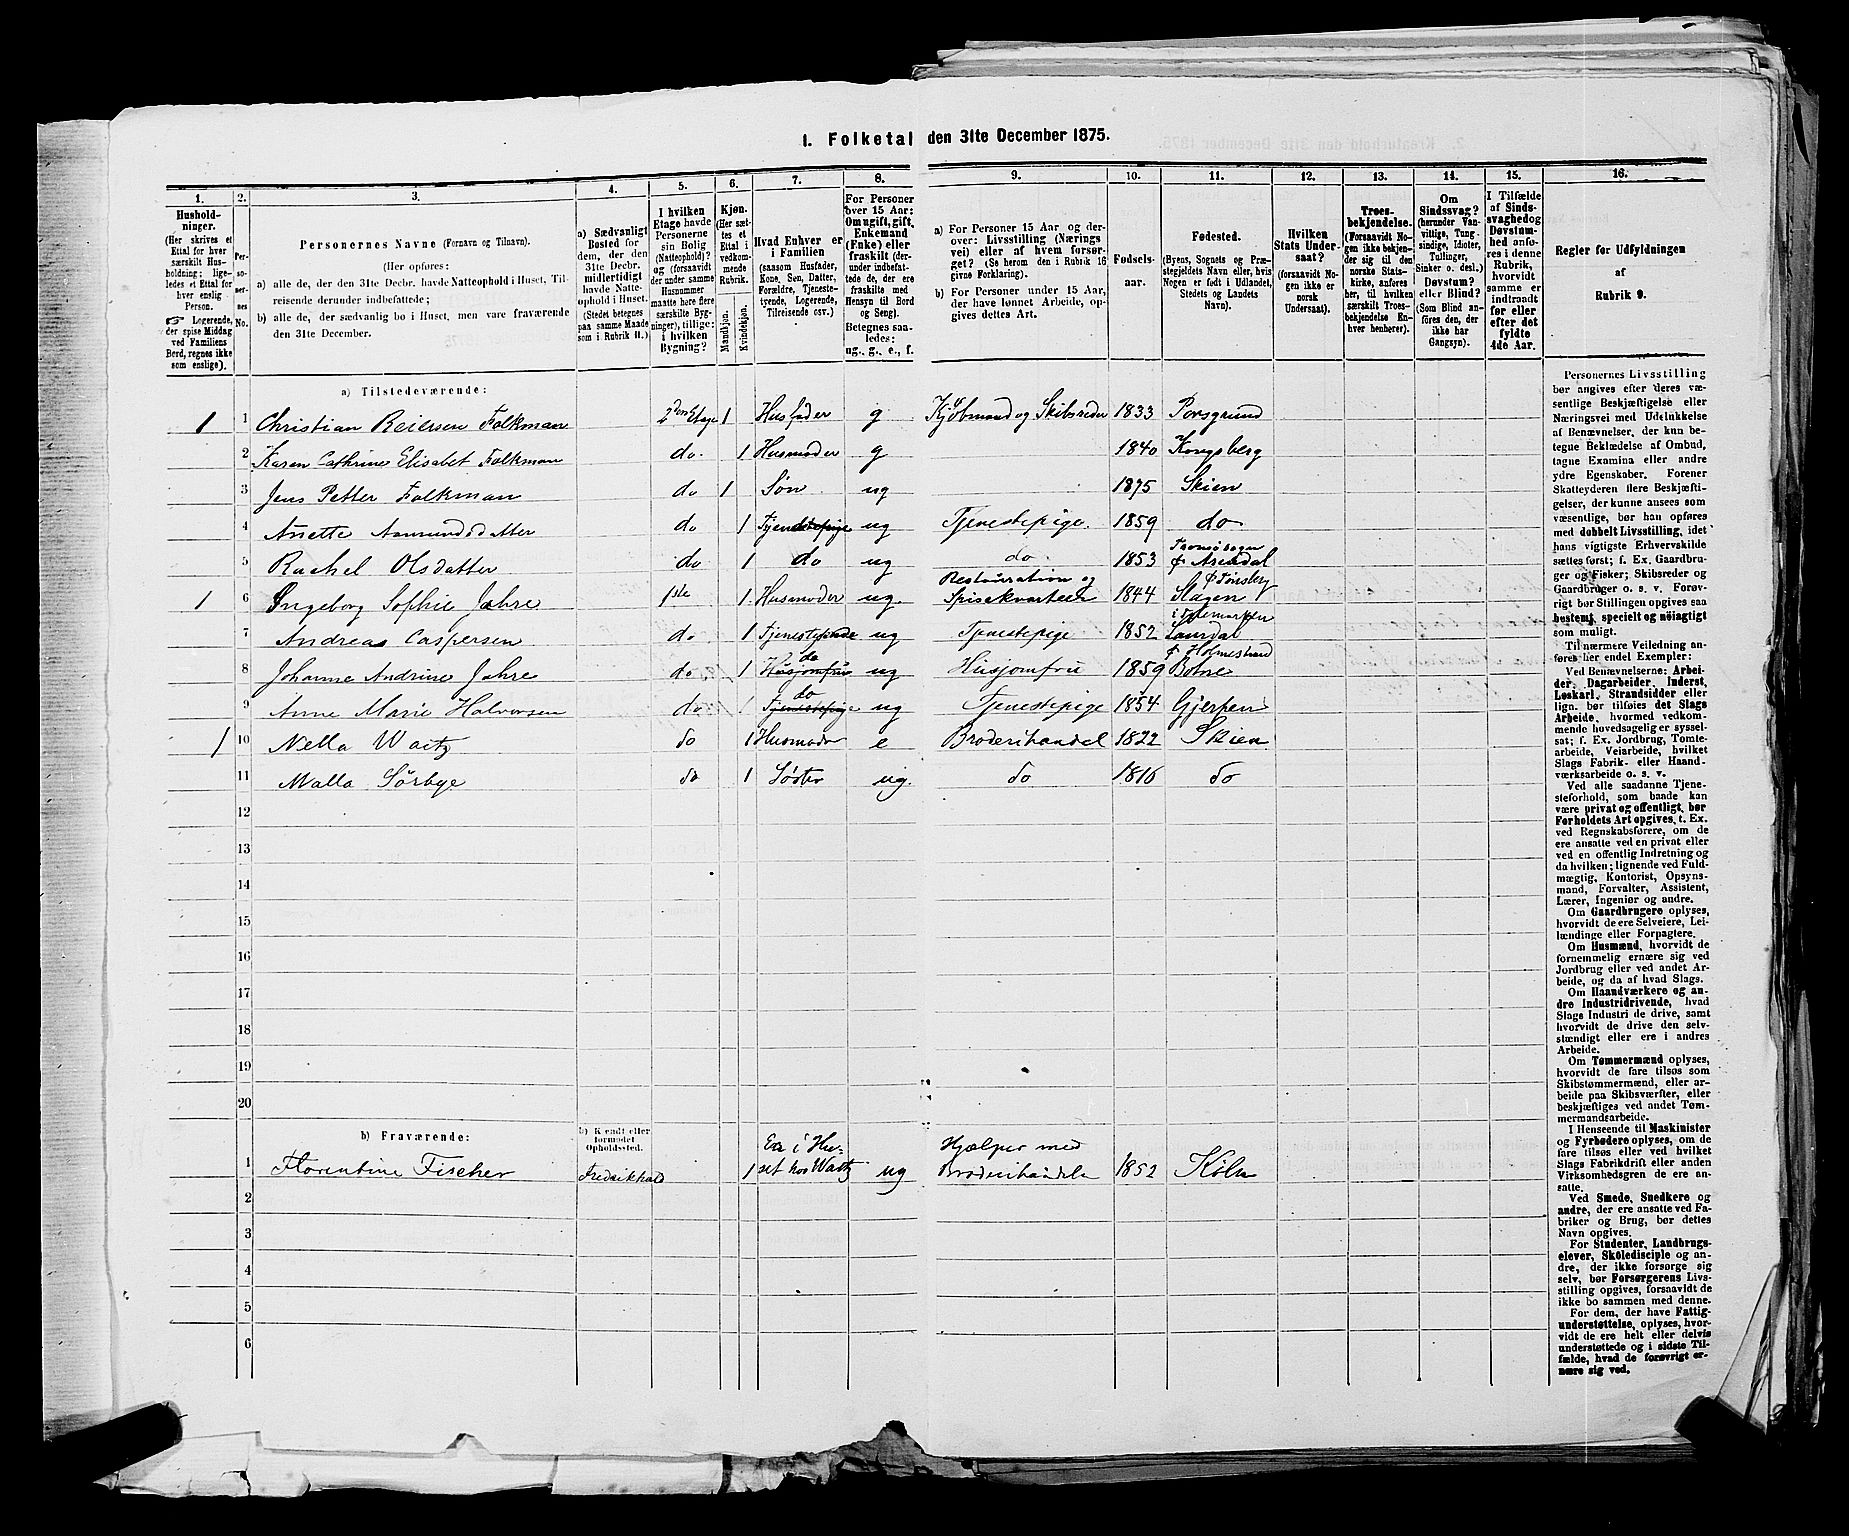 1. Folketal den 31te December 1875.
1. 2. 3. 4. 5. 6. 7. 8. 9. 10. 11. 12. 13. 14. 15. 16.
Hushold-
ninger.
(Her skrives et
Ettal for hver
særskilt Hus-
holdning; lige-
ledes et Ettal for
hver enslig
Person.
☞ Logerende,
der spise Middag
ved Familiens
Bord, regnes ikke
som enslige).
Per-
so-
ner-
nes
No.
Personernes Navne (Fornavn og Tilnavn).
(Her opføres:
a) alle de, der den 31te Decbr. havde Natteophold i Huset, Til-
reisende derunder indbefattede;
b) alle de, der sædvanlig bo i Huset, men vare fraværende
den 31te December.
a) Sædvanligt
Bosted for
dem, der den
31te Decbr.
midlertidigt
havde Natte-
ophold i Huset.
(Stedet betegnes
paa samme Maade
som i Rubrik 11.)
I hvilken
Etage havde
Personerne
sin Bolig
(Natteophold)?
og (forsaavidt
der under samme
Husnummer
maatte høre flere
særskilte Byg-
ninger), tillige:
i hvilken
Bygning?
Kjøn.
(Her sæt-
tes et
Ettal i
vedkom-
mende
Rubrik.
Mandkjøn.
Kvindekjøn.
Hvad Enhver er
i Familien
(saasom Husfader,
Kone, Søn, Datter,
Forældre, Tjeneste-
tyende, Logerende,
Tilreisende osv.)
For Personer
over 15 Aar:
Om ugift, gift,
Enkemand
(Enke) eller
fraskilt (der-
under indbefat-
tede de, der ere
fraskilte med
Hensyn til Bord
og Seng).
Betegnes saa-
ledes:
ug., g., e., f.
a) For Personer 15 Aar og der-
over: Livsstilling (Nærings
vei) eller af hvem forsør-
get? (Se herom den i Rubrik 16
givne Forklaring).
b) For Personer under 15 Aar,
der have lønnet Arbeide, op-
gives dettes Art.
Fødsels-
aar.
Fødested.
(Byens, Sognets og Præ-
stegjeldets Navn eller, hvis
Nogen er født i Udlandet,
Stedets og Landets
Navn).
Hvilken
Stats Under-
saat?
(forsaavidt No-
gen ikke er
norsk
Undersaat).
Troes-
bekjendelse.
(Forsaavidt No-
gen ikke bekjen-
der sig til den
norske Stats-
kirke, anføres
her, til hvilken
særskilt Troes-
bekjendelse En-
hver henhører).
Om
Sindssvag?
(herunder Van-
vittige, Tung-
sindige, Idioter,
Tullinger,
Sinker o. desl.)
Døvstum?
eller Blind?
(Som Blind an-
føres den, der
ikke har
Gangsyn).
I Tilfælde
af Sinds-
svaghed og
Døvstum-
hed anfø-
res i denne
Rubrik,
hvorvidt
samme er
indtraadt
før eller
efter det
fyldte
4de Aar.
Regler for Udfyldningen
af
Rubrik 9.
a) Tilstedeværende:
1 1 Christian Reiersen Falkman 2den Etage 1 Husfader g Kjøbmand og Skibsreder 1833 Porsgrund
2 Karen Cathrine Elisabet Falkman do. 1 Husmoder g 1840 Kongsberg
3 Jens Petter Falkman do 1 Søn ug 1875 Skien
4 Anette Aamundsdatter do 1 Tjenestepige ug Tjenestepige 1859 do
5 Rachel Olsdatter do 1 do ug do. 1853 Tromsøsogn Arendal
1 6 Ingeborg Sophie Jahre 1ste 1 Husmoder ug. Restauration og Spisekvarteer 1844 Slagen Tønsberg
7 Andrea Caspersen do. 1 Tjenestepende ug Tjenestepige 1852 i Thelemarken Laurdal
8 Johanne Andrine Jahre do 1 Husjomfru do ug Husjomfru 1859 Holmestrand Botne
9 Anne Marie Halvorsen do 1 Tjenestepige do ug Tjenestepige 1854 Gjerpen
1 10 Nella Waitz do 1 Husmoder e Broderihandel 1822 Skien
11 Malla Sørbye do 1 Søster ug. do 1816 do
12
13
14
15
16
17
18
19
20
b) Fraværende:
b) Kjendt eller
formodet
Opholdssted.
1 Florentine Fischer Fredrikhald 1 Er i Hu-
set hos Waitz ug Hjælper med
Broderihandelen 1852 Køln
2
3
4
5
6
Personernes Livsstilling
bør angives efter deres væ-
sentlige Beskjæftigelse eller
Næringsvei med Udelukkelse
af Benævnelser, der kun be-
tegne Beklædelse af Ombud,
tagne Examina eller andre
ydre Egenskaber. Forener
Skatteyderen flere Beskjæfti-
gelser, der kunne ansees som
væsentlige, bør han opføres
med dobbelt Livsstilling, idet
hans vigtigste Erhvervskilde
sættes først; f. Ex. Gaardbru-
ger og Fisker; Skibsreder og
Gaardbruger o. s. v. Forøv-
rigt bør Stillingen opgives saa
bestemt, specielt og nøiagtigt
som muligt.
Til nærmere Veiledning an-
føres her endel Exempler:
Ved Benævnelserne: Arbei-
der, Dagarbeider, Inderst,
Løskarl, Strandsidder eller
lign. bør tilføies det Slags
Arbeide, hvormed vedkom-
mende hovedsagelig er syssel-
sat; f. Ex. Jordbrug, Tomte-
arbeide, Veiarbeide, hvilket
Slags Fabrik- eller Haand-
værksarbeide o. s. v.
Ved alle saadanne Tjene-
steforhold, som baade kan
være privat og offentligt, bør
Forholdets Art opgives, t. Ex.
ved Regnskabsførere, om de
ere ansatte ved en privat eller
ved en offentlig Indretning og
da hvilken; lignende ved Fuld-
mægtig, Kontorist, Opsyns-
mand, Forvalter, Assistent,
Lærer, Ingeniør og andre.
Om Gaardbrugere oplyses,
hvorvidt de ere Selveiere, Lei-
lændinge eller Forpagtere.
Om Husmænd, hvorvidt de
fornemmelig ernære sig ved
Jordbrug eller ved andet Ar-
beide, og da af hvad Slags.
Om Haandværkere og an-
dre Industridrivende, hvad
Slags Industri de drive, samt
hvorvidt de drive den selv-
stændigt eller ere i andres
Arbeide.
Om Tømmermænd oplyses,
hvorvidt de fare tilsøs som
Skibstømmermænd, eller ar-
beide paa Skibsværfter, eller
beskjæftiges ved andet Tøm-
mermandsarbeide.
I Henseende til Maskinister
og Fyrbødere oplyses, om de
fare tilsøs eller ved hvilket
Slags Fabrikdrift eller anden
Virksomhedsgren de ere an-
satte.
Ved Smede, Snedkere og
andre, der ere ansatte ved Fa-
briker og Brug, bør dettes
Navn opgives.
For Studenter, Landbrugs-
elever, Skoledisciple og an-
dre, der ikke forsørge sig
selv, bør Forsørgerens Livs-
stilling opgives, forsaavidt de
ikke bo sammen med denne.
For dem, der have Fattig-
understøttelse, oplyses, hvor-
vidt de ere helt eller delvis
understøttede og i sidste Til-
fælde, hvad de forøvrigt er-
nære sig ved.